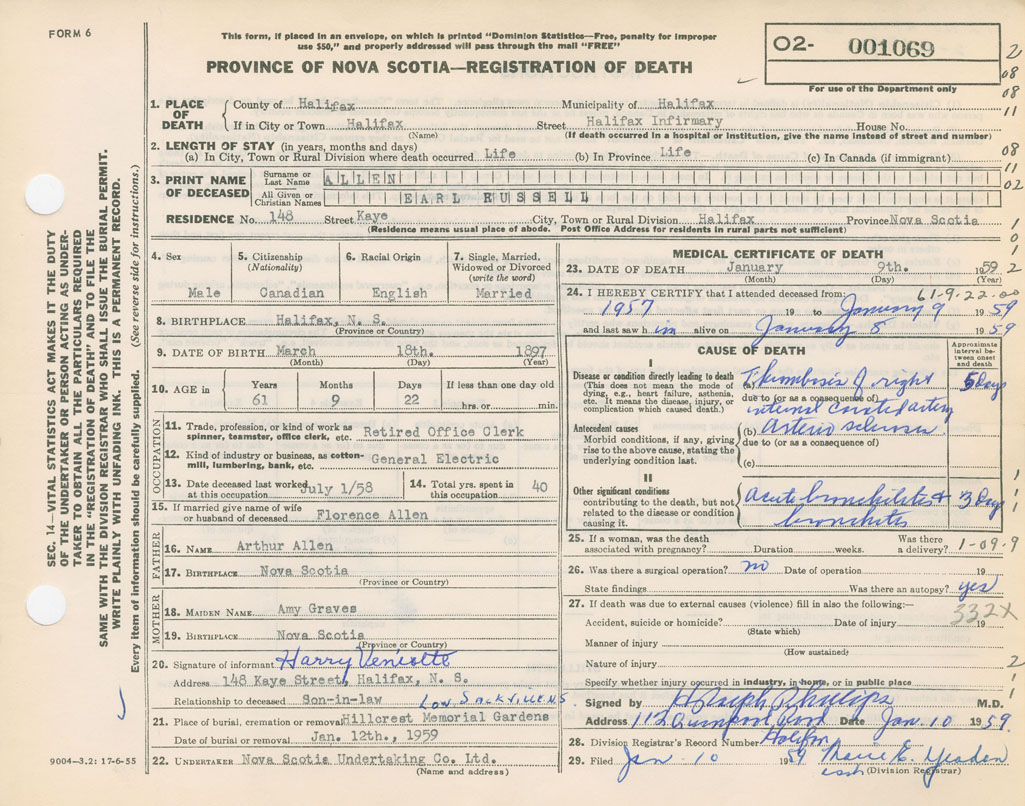 FORM 6
This form, if placed in an envelope, on which is printed "Dominion Statistics—Free, penalty for improper
use $50," and properly addressed will pass through the mail "FREE"
PROVINCE OF NOVA SCOTIA—REGISTRATION OF DEATH
02- 001069
For use of the Department only
2
08
08
11
08
11
02
1
0
1
2
SEC. 14—VITAL STATISTICS ACT MAKES IT THE DUTY
OF THE UNDERTAKER OR PERSON ACTING AS UNDER-
TAKER TO OBTAIN ALL THE PARTICULARS REQUIRED
IN THE "REGISTRATION OF DEATH" AND TO FILE THE
SAME WITH THE DIVISION REGISTRAR WHO SHALL ISSUE THE BURIAL PERMIT.
WRITE PLAINLY WITH UNFADING INK. THIS IS A PERMANENT RECORD.
Every item of information should be carefully supplied. (See reverse side for instructions.)
1. PLACE OF DEATH
County of Halifax Municipality of Halifax
If in City or Town Halifax Street Halifax Infirmary House No.
(Name) (If death occurred in a hospital or institution, give the name instead of street and number)
2. LENGTH OF STAY (in years, months and days)
(a) In City, Town or Rural Division where death occurred Life (b) In Province Life (c) In Canada (if immigrant)
3. PRINT NAME OF DECEASED
Surname or Last Name ALLEN
All Given or Christian Names EARL RUSSELL
RESIDENCE No. 148 Street Kaye City, Town or Rural Division Halifax Province Nova Scotia
(Residence means usual place of abode. Post Office Address for residents in rural parts not sufficient)
4. Sex Male
5. Citizenship (Nationality) Canadian
6. Racial Origin English
7. Single, Married, Widowed or Divorced (write the word) Married
8. BIRTHPLACE Halifax, N. S.
(Province or Country)
9. DATE OF BIRTH March 18th. 1897
(Month) (Day) (Year)
10. AGE in Years 61 Months 9 Days 22 If less than one day old hrs. or min.
OCCUPATION
11. Trade, profession, or kind of work as spinner, teamster, office clerk, etc. Retired Office Clerk
12. Kind of industry or business, as cotton-mill, lumbering, bank, etc. General Electric
13. Date deceased last worked at this occupation July 1/58
14. Total yrs. spent in this occupation 40
15. If married give name of wife or husband of deceased Florence Allen
FATHER
16. NAME Arthur Allen
17. BIRTHPLACE Nova Scotia
(Province or Country)
MOTHER
18. MAIDEN NAME Amy Graves
19. BIRTHPLACE Nova Scotia
(Province or Country)
20. Signature of informant Harry
Address 148 Kaye Street, Halifax, N. S.
Relationship to deceased Son-in-law
Low. SACKVILLE N S
21. Place of burial, cremation or removal Hillcrest Memorial Gardens
Date of burial or removal Jan. 12th., 1959
22. UNDERTAKER Nova Scotia Undertaking Co. Ltd.
(Name and address)
9004—3.2: 17-6-55
MEDICAL CERTIFICATE OF DEATH
23. DATE OF DEATH January 9th. 1959
(Month) (Day) (Year)
61-9-22-00
24. I HEREBY CERTIFY that I attended deceased from:
1957 19 to January 9 1959
and last saw him alive on January 8 1959
CAUSE OF DEATH
Approximate interval between onset and death
I
Disease or condition directly leading to death
(This does not mean the mode of dying, e.g., heart failure, asthenia, etc. It means the disease, injury, or complication which caused death.)
(a) Thrombosis of right 5 Days
due to (or as a consequence of)
internal carotid artery
Antecedent causes
Morbid conditions, if any, giving rise to the above cause, stating the underlying condition last.
(b) Arterio sclerosis
due to (or as a consequence of)
(c)
II
Other significant conditions
contributing to the death, but not related to the disease or condition causing it.
Acute bronchiolitis + 3 Days
bronchitis
1
1
1
25. If a woman, was the death associated with pregnancy? Duration weeks. Was there a delivery? 1-09-9
26. Was there a surgical operation? no Date of operation 19
State findings Was there an autopsy? yes
27. If death was due to external causes (violence) fill in also the following:—
332X
Accident, suicide or homicide? Date of injury 19
(State which)
Manner of injury
(How sustained)
Nature of injury
Specify whether injury occurred in industry, in home, or in public place
2
1
1
Signed by Joseph Phillips M.D.
Address 112 Date Jan. 10 1959.
28. Division Registrar's Record Number Halifax
29. Filed Jan. 10 1959 Marie E.
(Division Registrar)